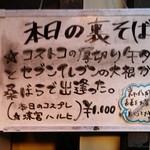 本日の裏そば
☆コストコの厚切り牛タン
とセブンイレブンの大根が
桑ばらで出逢った。
(本日のコスプレ
☆涼宮ハルヒ) ¥1,100